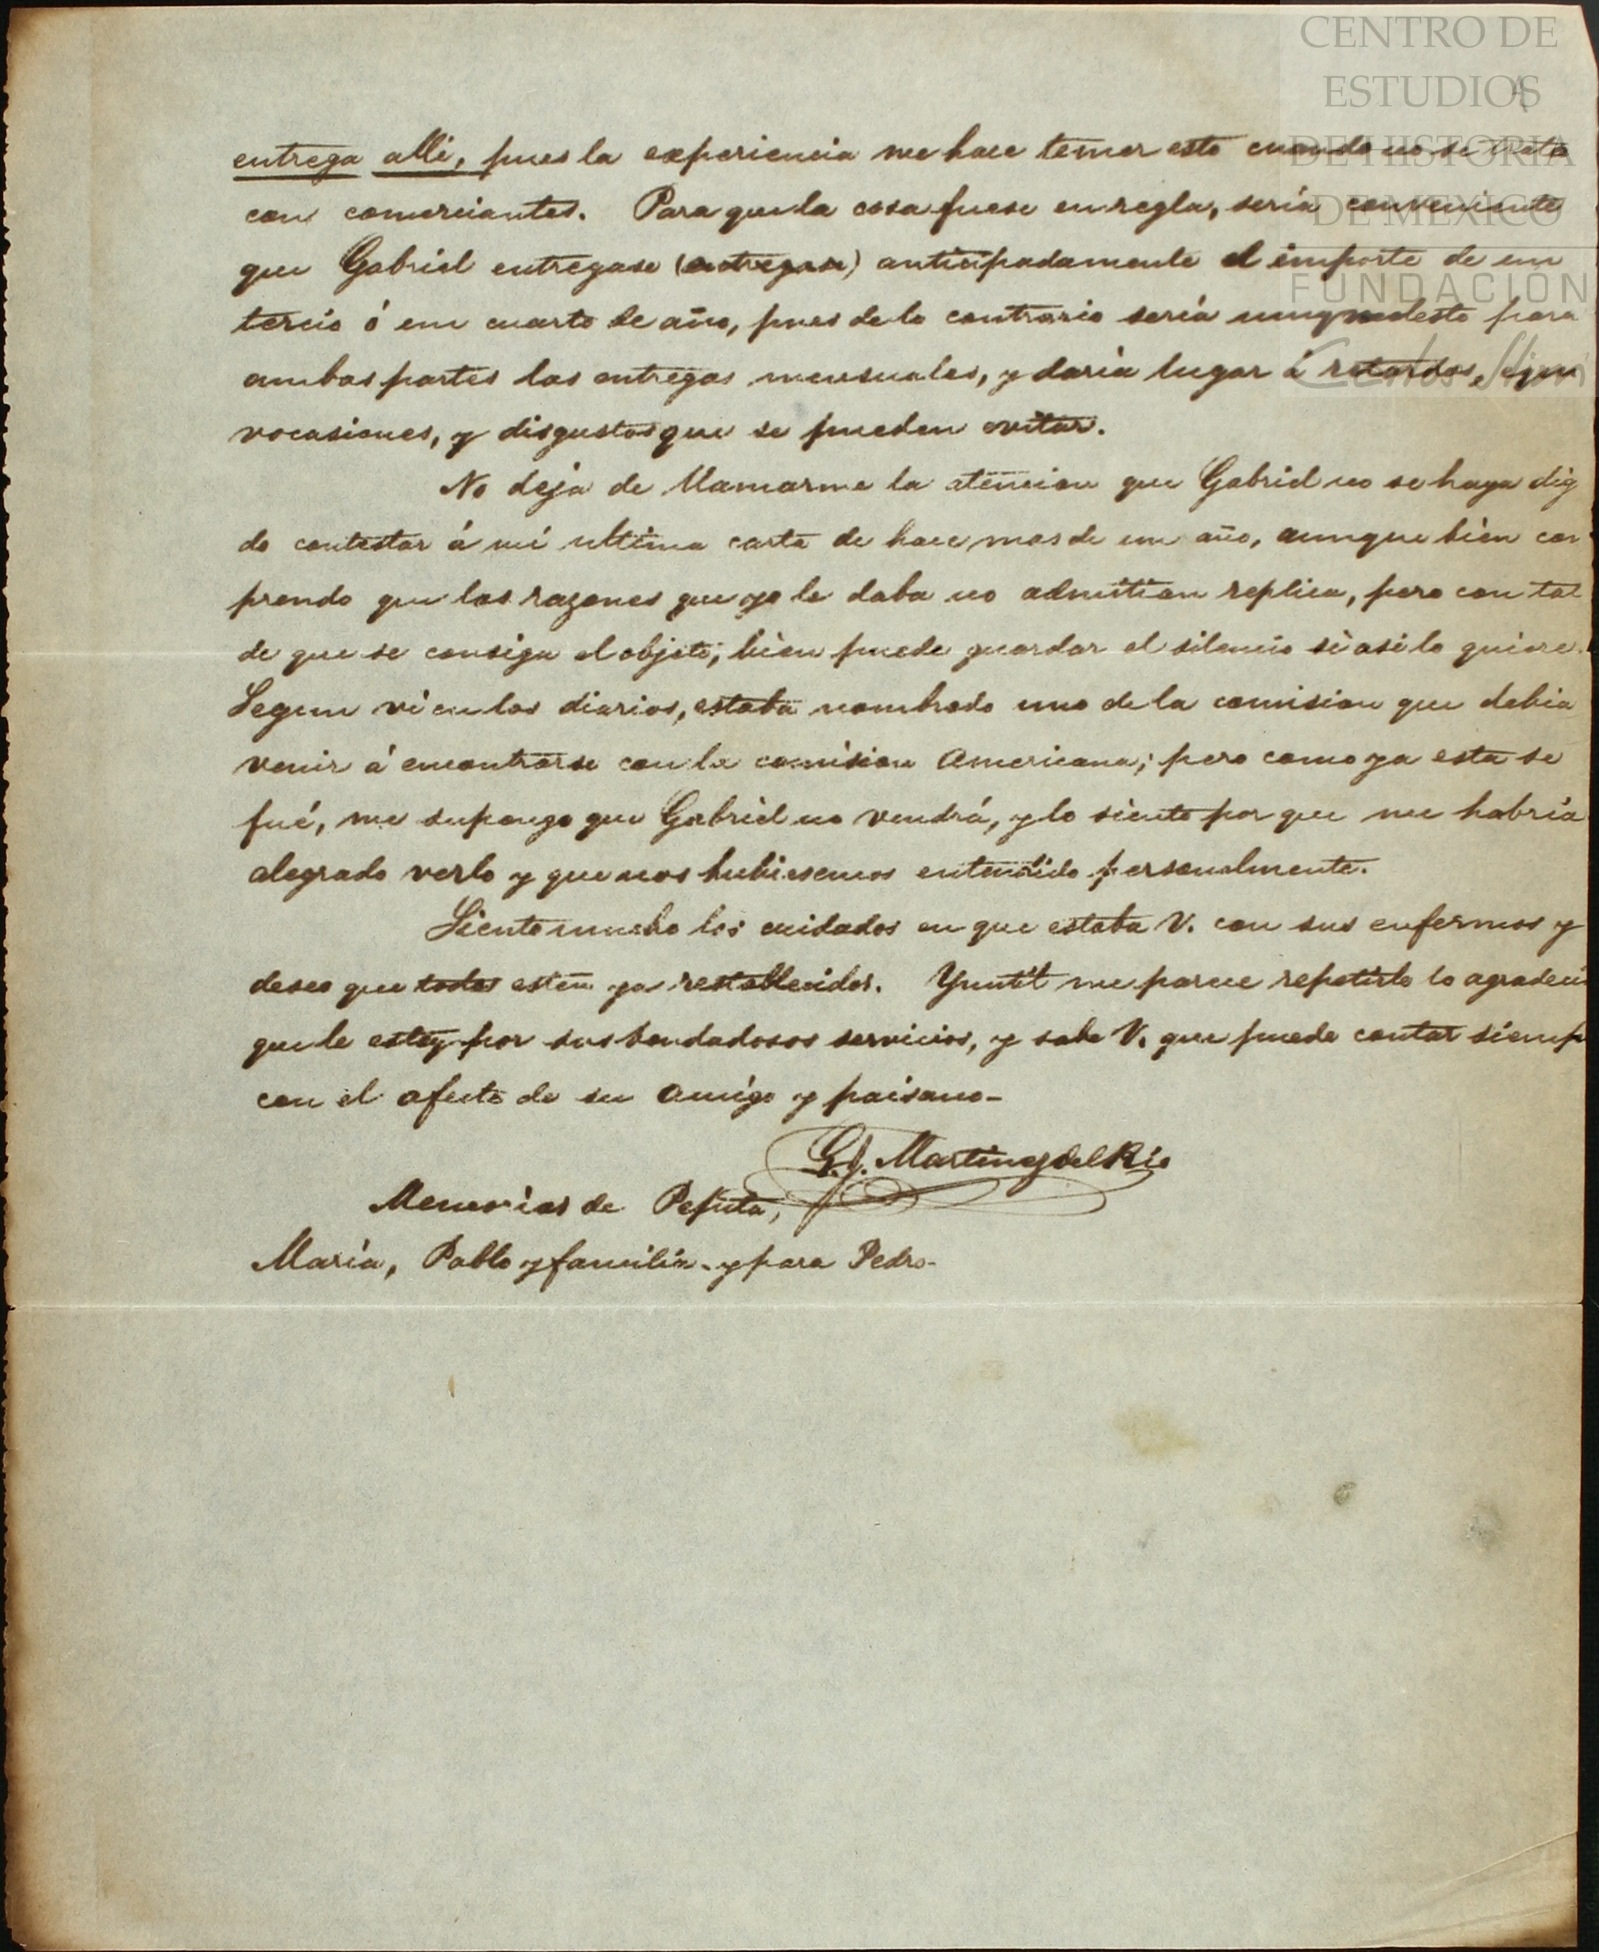 CENTRO DE
ESTUDIOS
DE HISTORIA
DE MEXICO
FUNDACIÓN
Carlos Slim
entrega alli, pues la experiencia me hace temer esto cuando no se trata
con comerciantes. Para que la cosa fuese en regla, sería conveniente
que Gabriel entregase (entregase) anticipadamente el importe de un
tercio ó un cuarto de año, pues de lo contrario sería muy molesto para
ambas partes las entregas mensuales, y daría lugar á retardos, equi
vocasiones, y disgustos que se pueden evitar.
No deja de llamarme la atencion que Gabriel no se haya dig
do contestar á mi ultima carta de hace mas de un año, aunque bien com
prendo que las razones que yo le daba no admitian replica, pero con tal
de que se consiga el objeto, bien puede guardar el silencio si asi lo quiere.
Segun vi en los diarios, estaba nombrado uno de la comision que debia
venir á encontrarse con la comision Americana; pero como ya esta se
fué, me supongo que Gabriel no vendrá, y lo siento por que me habría
alegrado verlo y que nos hubiesemos entendido personalmente.
Siento mucho los cuidados en que estaba V. con sus enfermos y
deseo que todos esten ya restablecidos. Ynutil me parece repetirle lo agradeci
que le estoy por sus bondadosos servicios, y sabe V. que puede contar siemp
con el afecto de su amigo y paisano-
G. J. Martinez del Rio
Memorias de Pepita,
María, Pablo y familia. y para Pedro-